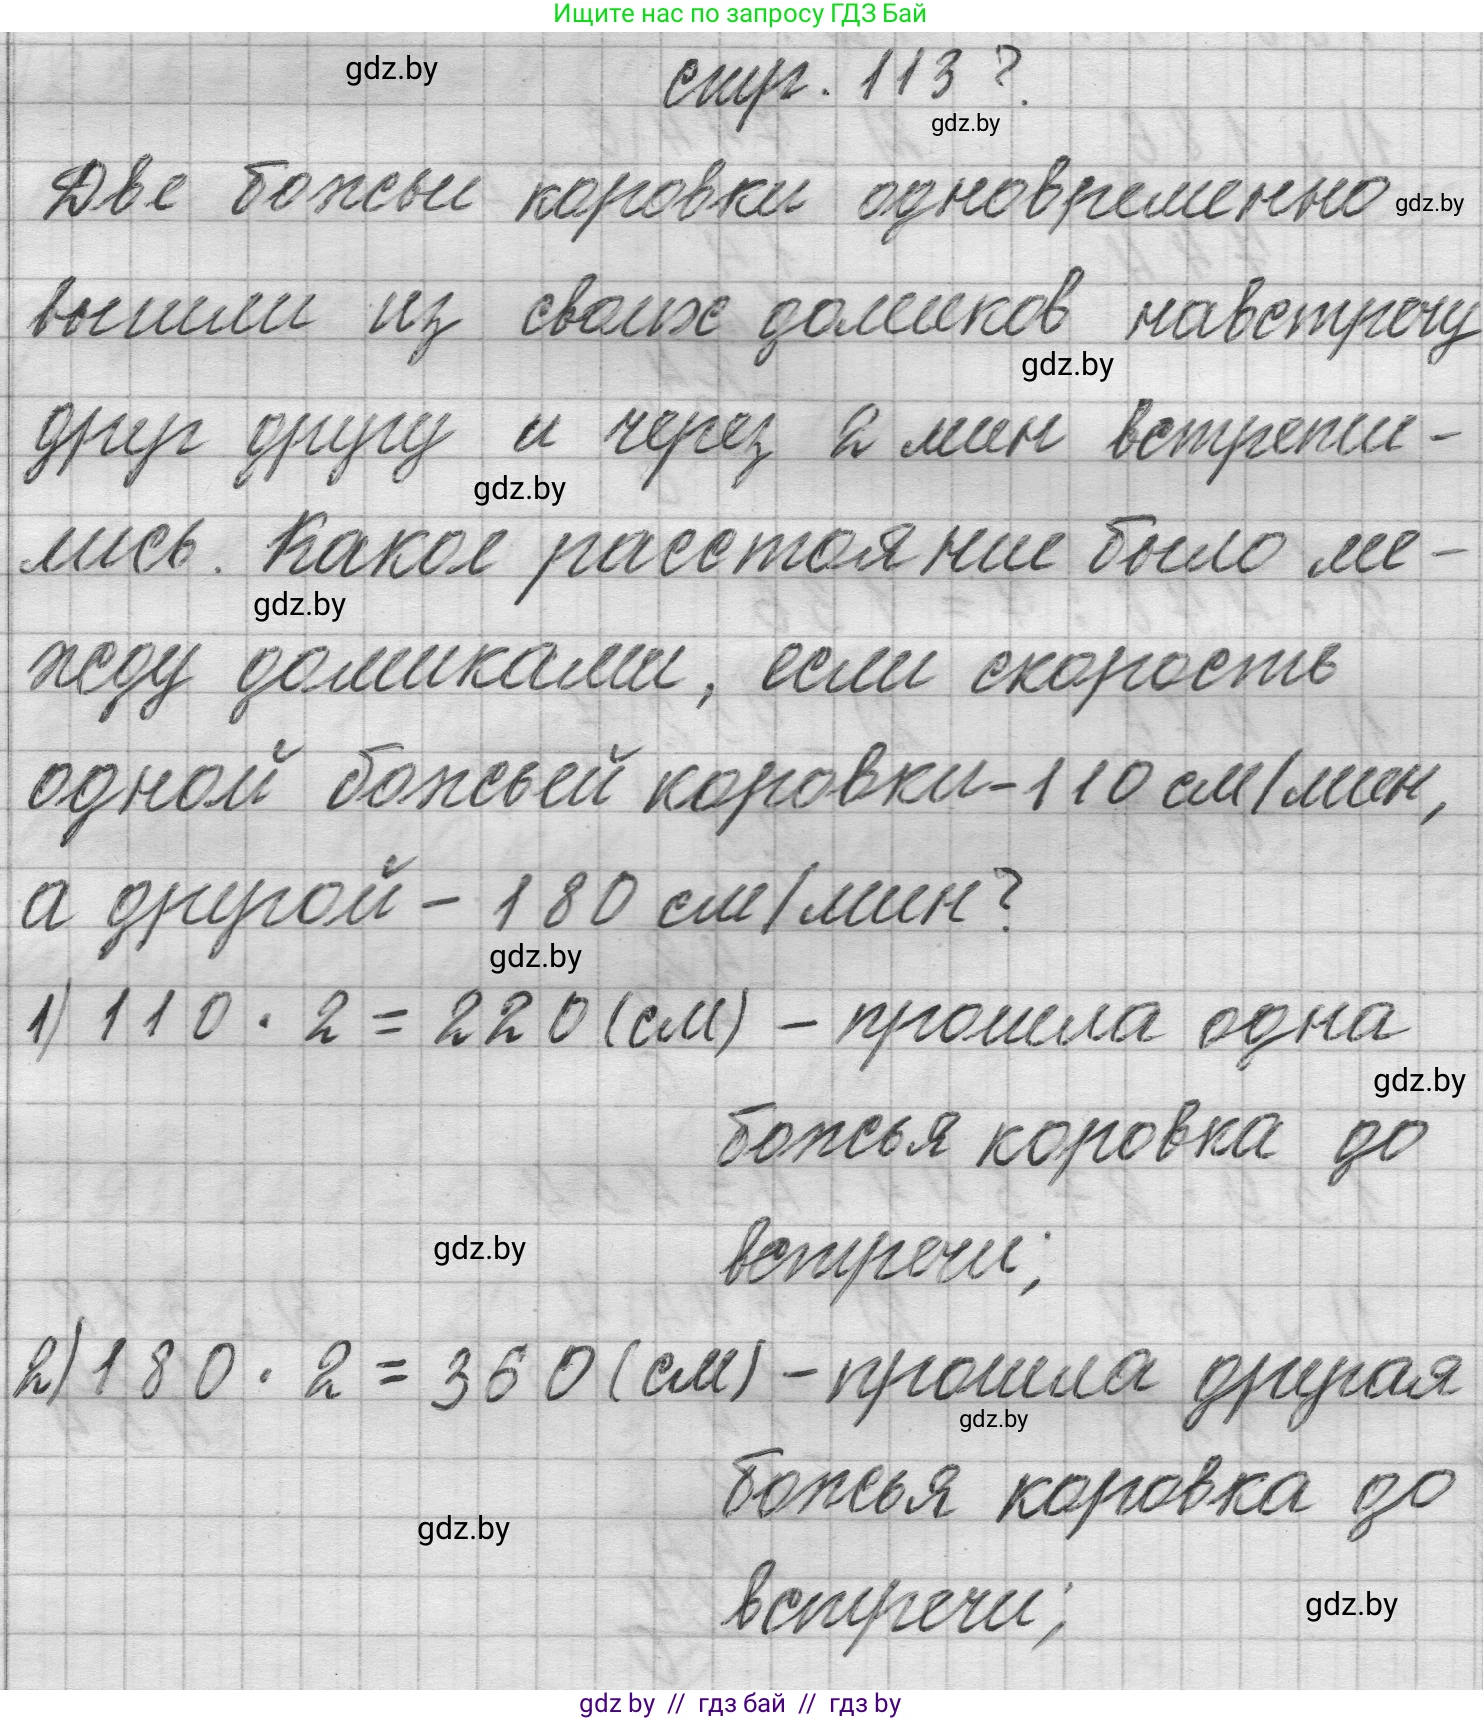 Ищите нас по запросу ГДЗ Бай
gdz.by
стр. 113 ?.
gdz.by
Две божьи коровки одновременно
gdz.by
вышли из своих домиков навстречу
gdz.by
друг другу и через 2 мин встрети-
gdz.by
лись. Какое расстояние было ме-
gdz.by
жду домиками, если скорость
одной божьей коровки - 110 см/мин,
а другой - 180 см/мин?
gdz.by
1) 110 · 2 = 220 (см) - прошла одна
gdz.by
божья коровка до
gdz.by
встречи;
2) 180 · 2 = 360 (см) - прошла другая
gdz.by
божья коровка до
gdz.by
встречи;
gdz.by
gdz by // гдз бай // гдз by